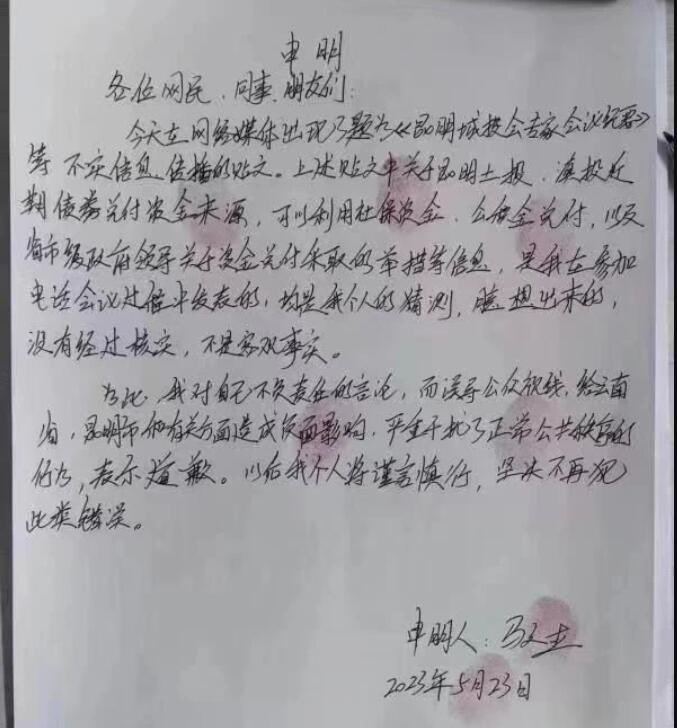 申明
各位网民、同事、朋友们：
今天在网络媒体出现了题为《昆明城投会专家会议纪要》
等不实信息传播的贴文。上述贴文中关于昆明土投、滇投近
期债券兑付资金来源，可以利用社保资金、公积金兑付，以及
省市级政府领导关于资金兑付采取的举措等信息，是我在参加
电话会议过程中发表的，均是我个人的猜测，臆想出来的，
没有经过核实，不是客观事实。
为此，我对自己不负责任的言论，而误导公众视线，给云南
省，昆明市和有关方面造成负面影响，严重干扰了正常公共秩序的
行为，表示道歉。以后我个人将谨言慎行，坚决不再犯
此类错误。
申明人：
2023年5月23日